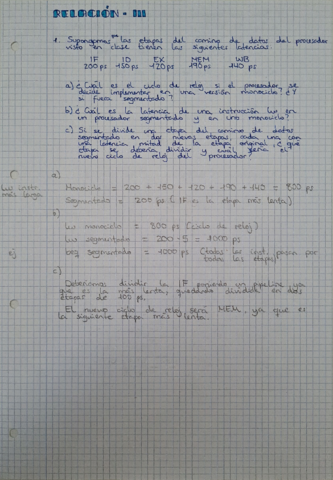 RELACIÓN - III
1. Supongamos que las etapas del camino de datos del procesador
visto en clase tienen las siguientes latencias
IF ID EX MEM WB
200 ps 150 ps 120 ps 190 ps 140 ps
a) ¿Cuál es el ciclo de reloj si el procesador se
decide implementar en una versión monociclo? ¿Y
si fuera segmentado?
b) ¿Cuál es la latencia de una instrucción lw en
un procesador segmentado y en uno monociclo?
c) Si se divide una etapa del camino de datos
segmentado en dos nuevas etapas, cada una con
una latencia mitad de la etapa original ¿qué
etapa se debería dividir y cuál sería el
nuevo ciclo de reloj del procesador?
a)
Lw inst. más larga
Monociclo = 200 + 150 + 120 + 190 + 140 = 800 ps
Segmentado = 200 ps (IF es la etapa más lenta)
b)
Lw monociclo = 800 ps (ciclo de reloj)
Lw segmentado = 200 · 5 = 1000 ps
segmentado = 1000 ps (todas las inst. pasan por
todas las etapas)
c)
Deberíamos dividir la IF ya
que es la más lenta, quedando dividida en dos
etapas de 100 ps.
El nuevo ciclo de reloj será MEM, ya que es
la siguiente etapa más lenta.